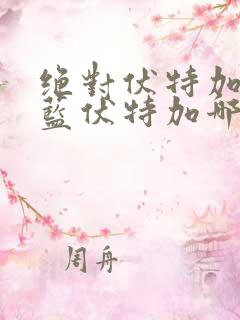 绝對伏特加
藍伏特加哪
周舟